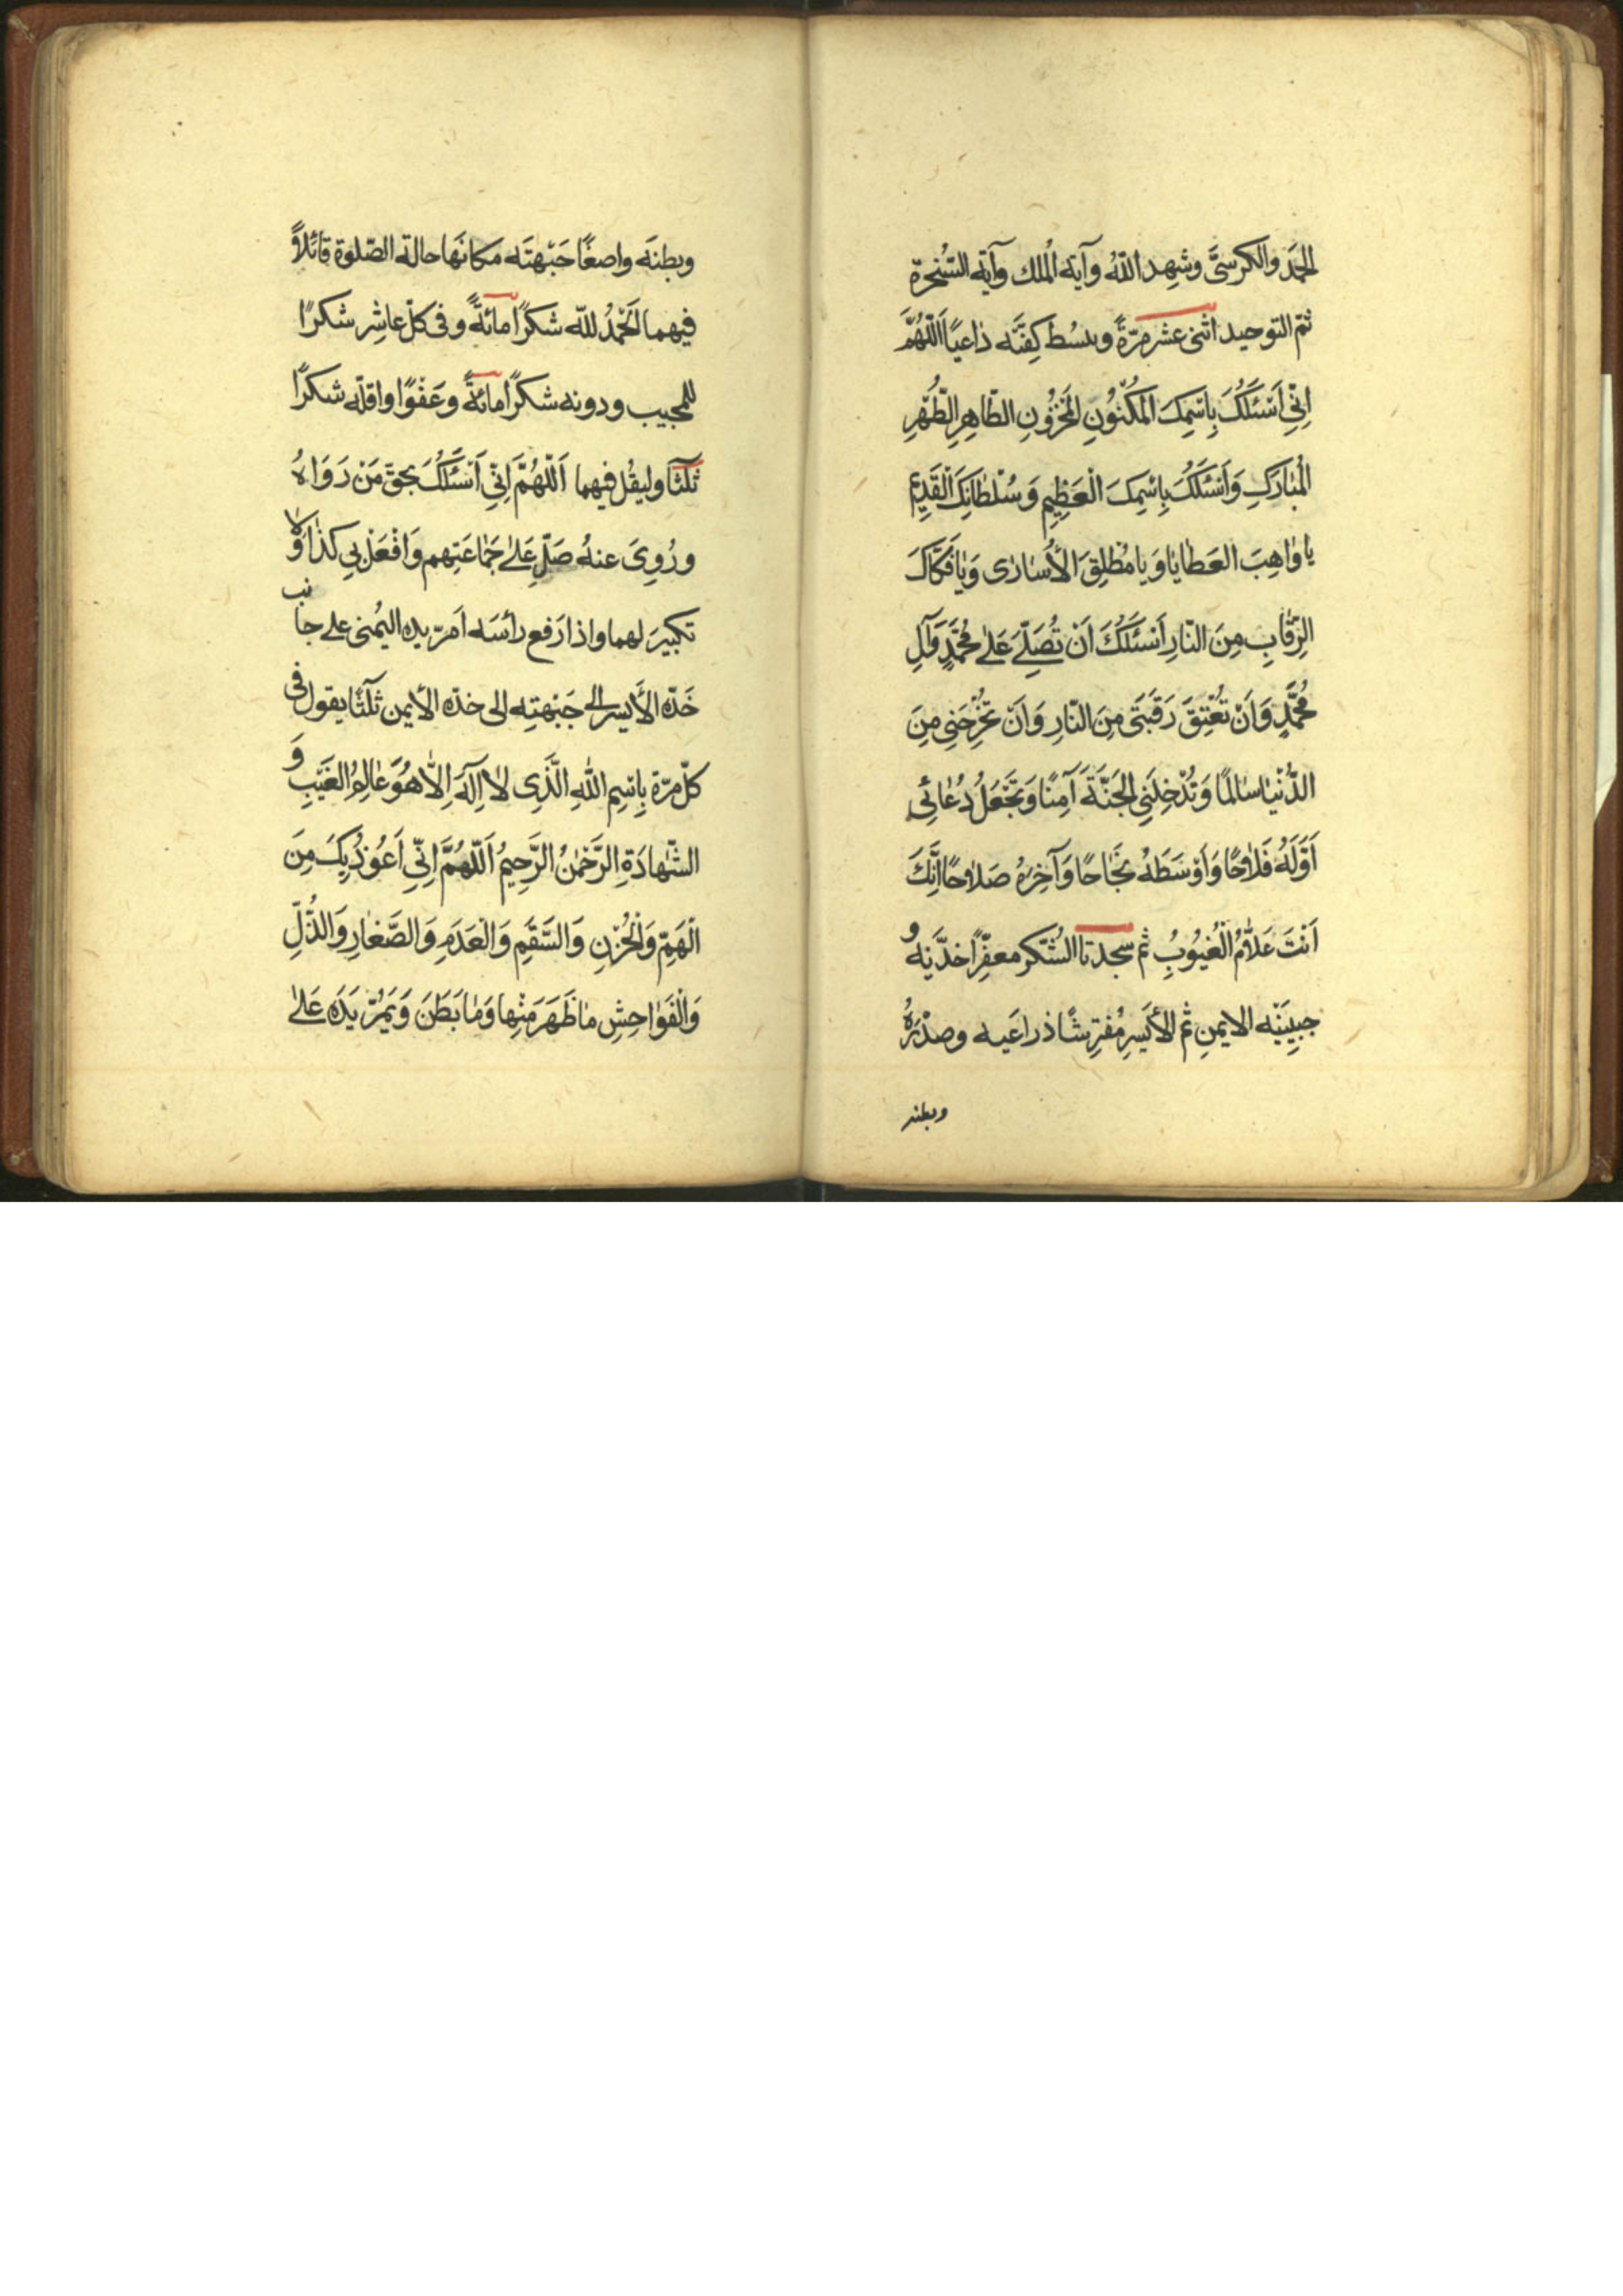 الحَمدَ والكرسىَّ وشهِد اللّٰهُ وآية المُلك وآية السُّخرة
ثمّ التوحيد اثنى عشر مرّةً ويبسُط كفَّيه داعيًا اَللّٰهُمَّ
اِنِّي اَسْئَلُكَ بِاسْمِكَ المَكْنُونِ المَخْزُونِ الطّاهِرِ الطُّهْرِ
المُبٰارَكِ وَاَسْئَلُكَ بِاسْمِكَ الْعَظِيمِ وَسُلْطٰانِكَ الْقَدِيمِ
يا وٰاهِبَ العَطٰايٰا وَيا مُطْلِقَ الأُسٰارٰى وَيٰا فَكّٰاكَ
الرِّقٰابِ مِنَ النّٰارِ اَسْئَلُكَ اَنْ تُصَلِّيَ عَلىٰ مُحَمَّدٍ وَآلِ
مُحَمَّدٍ وَاَنْ تُعْتِقَ رَقَبَتي مِنَ النّٰارِ وَاَنْ تُخْرِجَنِي مِنَ
الدُّنْيٰا سٰالمًا وَتُدْخِلَنِي الجَنَّةَ آمِنًا وَتَجْعَلُ دُعٰائِي
اَوَّلَهُ فَلاٰحًا وَاَوْسَطَهُ نَجٰاحًا وَآخِرَهُ صَلاٰحًا اِنَّكَ
اَنْتَ عَلاّٰمُ الْغُيُوبُ ثم سجدتا الشُّكر معفِّرًا خدَّيه و
جبِينَيْه الايمنِ ثم الأيَسِر مُفترِشًا ذراعَيه وصدْرَهُ
وبطنه
وبطنَه واضعًا جَبْهتَه مكانَها حالة الصّلوة قائلاً
فيهما اَلحَمْدُ للّٰه شكرًا مائةً وفى كلّ عاشِر شكرًا
للمجيب ودونه شكرًا مائةً وعَفْوًا واقلّه شكرًا
ثلٰثا وليقُل فيهما اَللّٰهُمَّ اِنِّي اَسْئَلُكَ بحقّ مَنْ رَوَاهُ
ورُوِىَ عنهُ صَلِّ عَلىٰ جَمٰاعَتِهم وَافْعَلْ بِي كذٰا وَلا
تكبيرَ لهما واذا رَفع رأسَه اَمرّ يده اليُمنى على جانب
خَدّه الأَيسر الى جَبْهتِه الى خدّه الأيمن ثلٰثًا يقول فى
كلّ مرّة بِاسْمِ اللّٰهِ الَّذِي لاٰ اِلٰهَ اِلاّٰ هُوَ عٰالِمُ الغَيْبِ وَ
الشَّهٰادَةِ الرَّحْمٰنُ الرَّحِيمُ اَللّٰهُمَّ اِنِّي اَعُوذُ بِكَ مِنَ
الْهَمِّ وَالْحُزْنِ وَالسَّقَمِ وَالْعَدَمِ وَالصَّغٰارِ وَالذُّلِّ
وَالْفَوٰاحِشِ مٰا ظَهَرَ مَنْهٰا وَمٰا بَطَنَ وَيَمُرّ يَدَه عَلىٰ